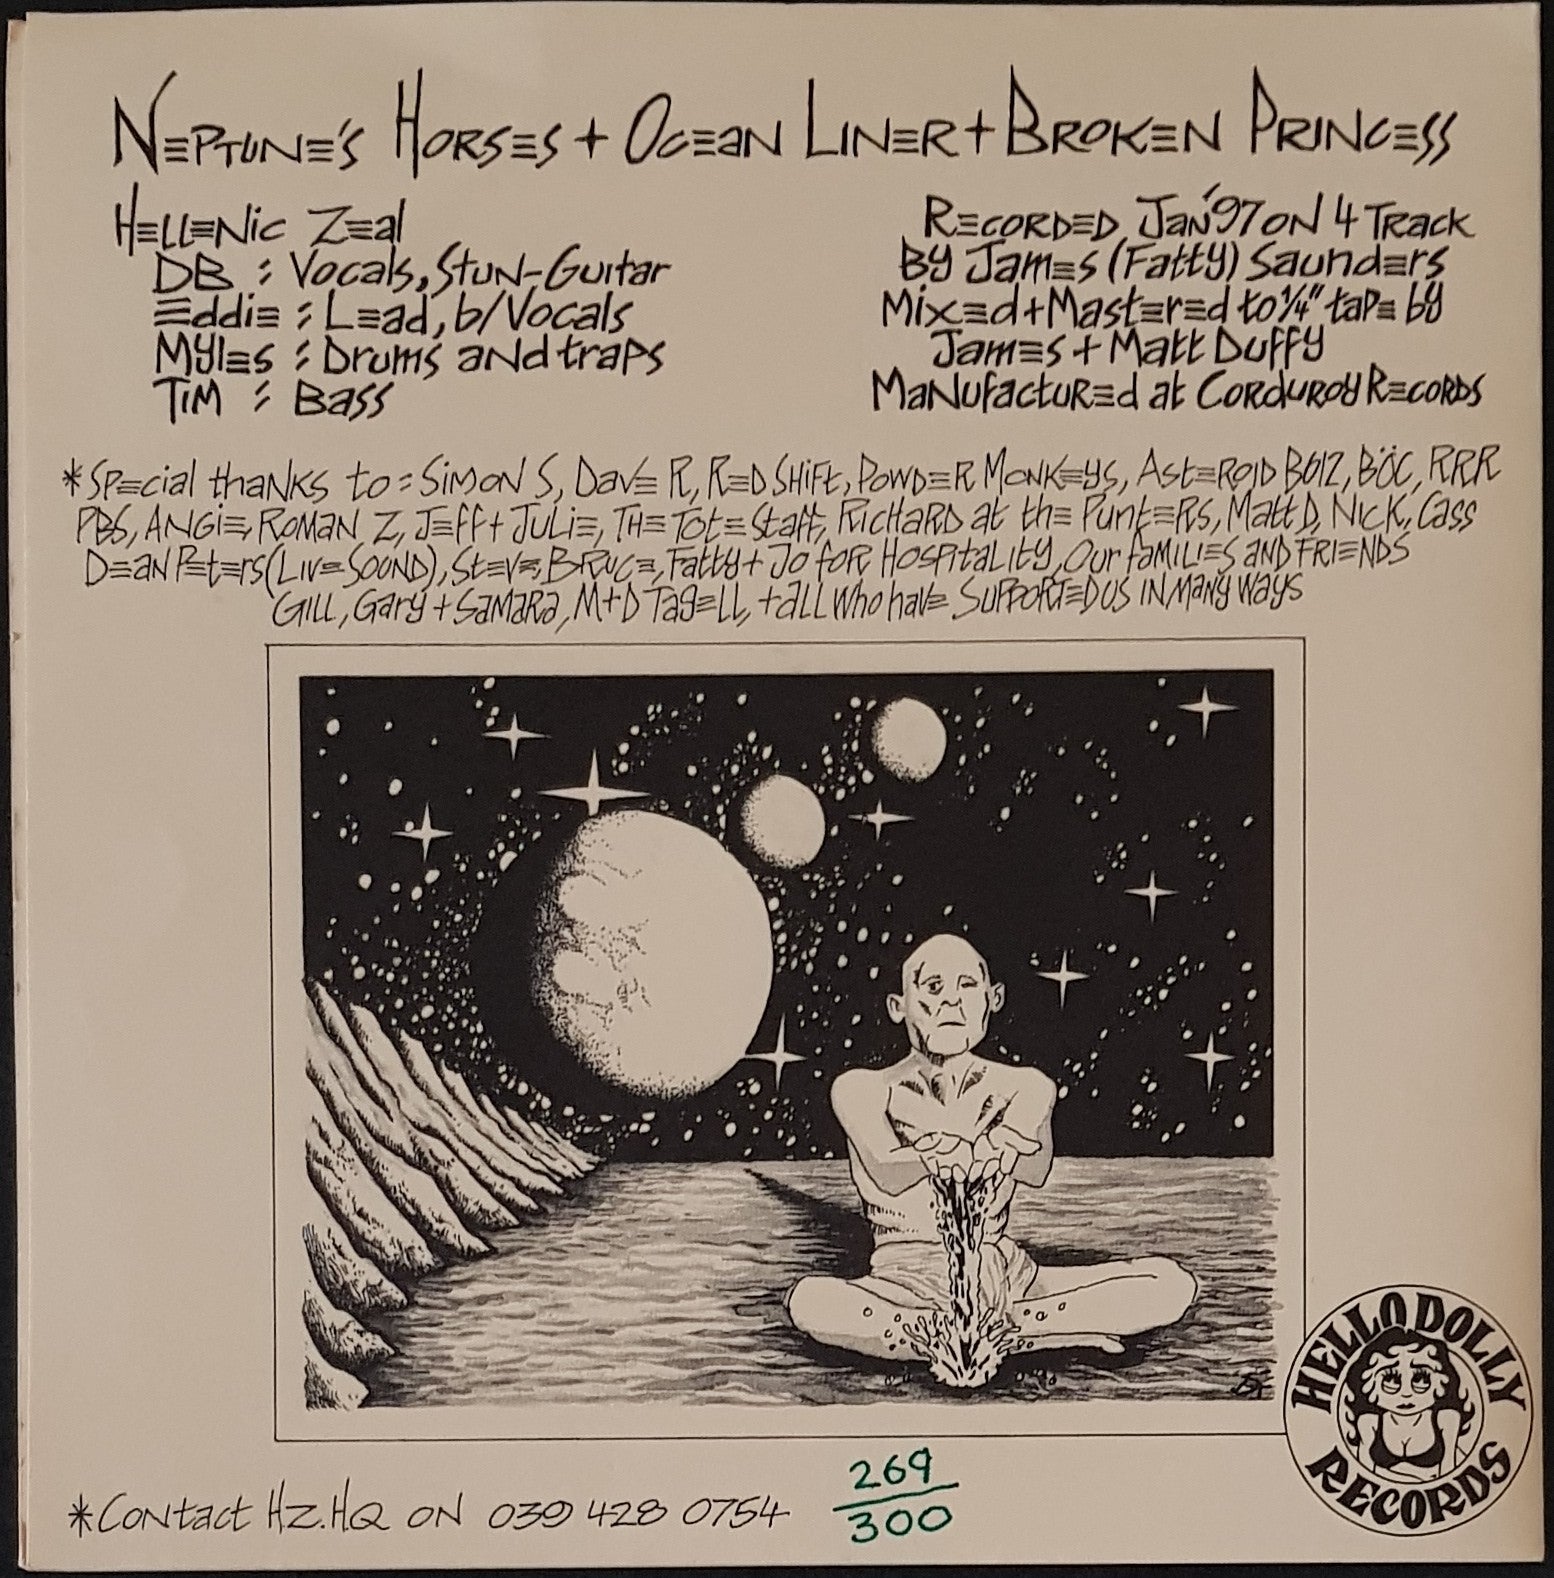 Neptune's Horses + Ocean Liner + Broken Princess
Hellenic Zeal
DB : Vocals, Stun-Guitar
Eddie : Lead, b/Vocals
Myles : Drums and traps
Tim : Bass
Recorded Jan '97 on 4 Track
By James (Fatty) Saunders
Mixed + Mastered to 1/4" tape by
James + Matt Duffy
Manufactured at Corduroy Records
*Special thanks to : Simon S, Dave R, Red Shift, Powder Monkeys, Asteroid B612, BÖC, RRR
PBS, Angie, Roman Z, Jeff + Julie, The Tote Staff, Richard at the Punters, Matt D, Nick, Cass
Dean Peters (Live Sound), Steve, Bruce, Fatty + Jo for Hospitality, Our families and friends
Gill, Gary + Samara, M+D Tagell, + all who have supported us in many ways
HELLO DOLLY
RECORDS
*Contact HZ.HQ on 039 428 0754
269
300